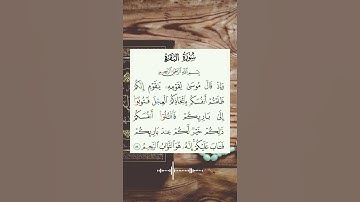 سُورَةُ الْبَقَرَةِ
بِسْمِ اللَّهِ الرَّحْمَٰنِ الرَّحِيمِ
وَإِذْ قَالَ مُوسَىٰ لِقَوْمِهِ يَٰقَوْمِ إِنَّكُمْ
ظَلَمْتُمْ أَنفُسَكُم بِاتِّخَاذِكُمُ الْعِجْلَ فَتُوبُوا
إِلَىٰ بَارِئِكُمْ فَاقْتُلُوا أَنفُسَكُمْ
ذَٰلِكُمْ خَيْرٌ لَّكُمْ عِندَ بَارِئِكُمْ
فَتَابَ عَلَيْكُمْ إِنَّهُ هُوَ التَّوَّابُ الرَّحِيمُ